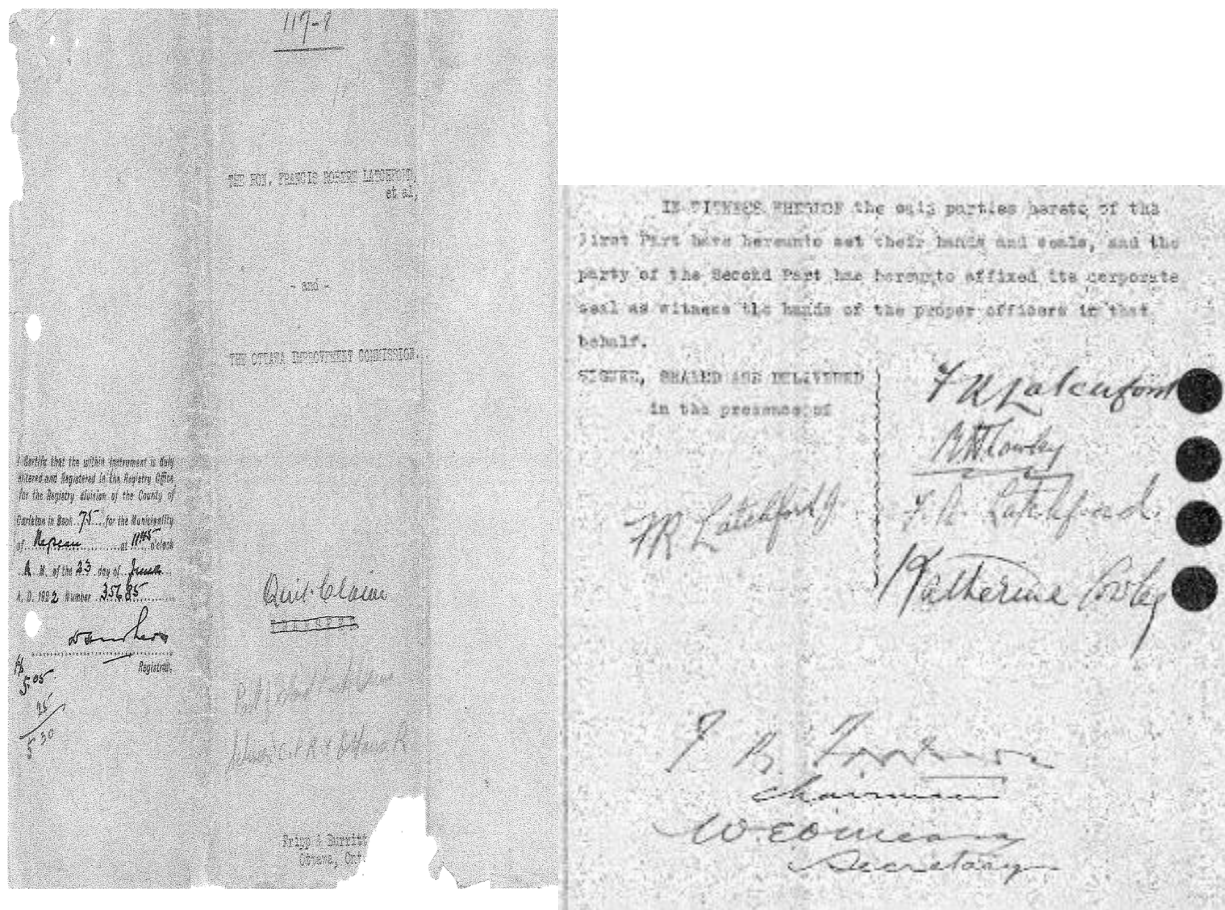 117-1
THE HON. FRANCIS ROBERT LATCHFORD,
et al,
- and -
THE OTTAWA IMPROVEMENT COMMISSION.
I Certify that the within instrument is duly
entered and Registered in the Registry Office
for the Registry division of the County of
Carleton in Book 75 for the Municipality
of Nepean at 11:45 o'clock
A. M. of the 23 day of June
A. D. 1922 Number 35685
Registrar.
5.05
25
5 30
Quit Claim
Fripp & Burritt
Ottawa, Ont
IN WITNESS WHEREOF the said parties hereto of the
First Part have hereunto set their hands and seals, and the
party of the Second Part has hereunto affixed its corporate
seal as witness the hands of the proper officers in that
behalf.
SIGNED, SEALED AND DELIVERED
in the presence of
F R Latchford
F. R. Latchford
FR Latchford J.
Katherine Cowley
Chairman
Secretary